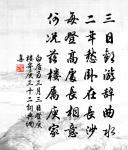 三日歡游辞曲水
二年愁卧在長沙
每登高處長相憶
何况兹樓属庾家
白居易三月三日登庾
樓寄庾三十二